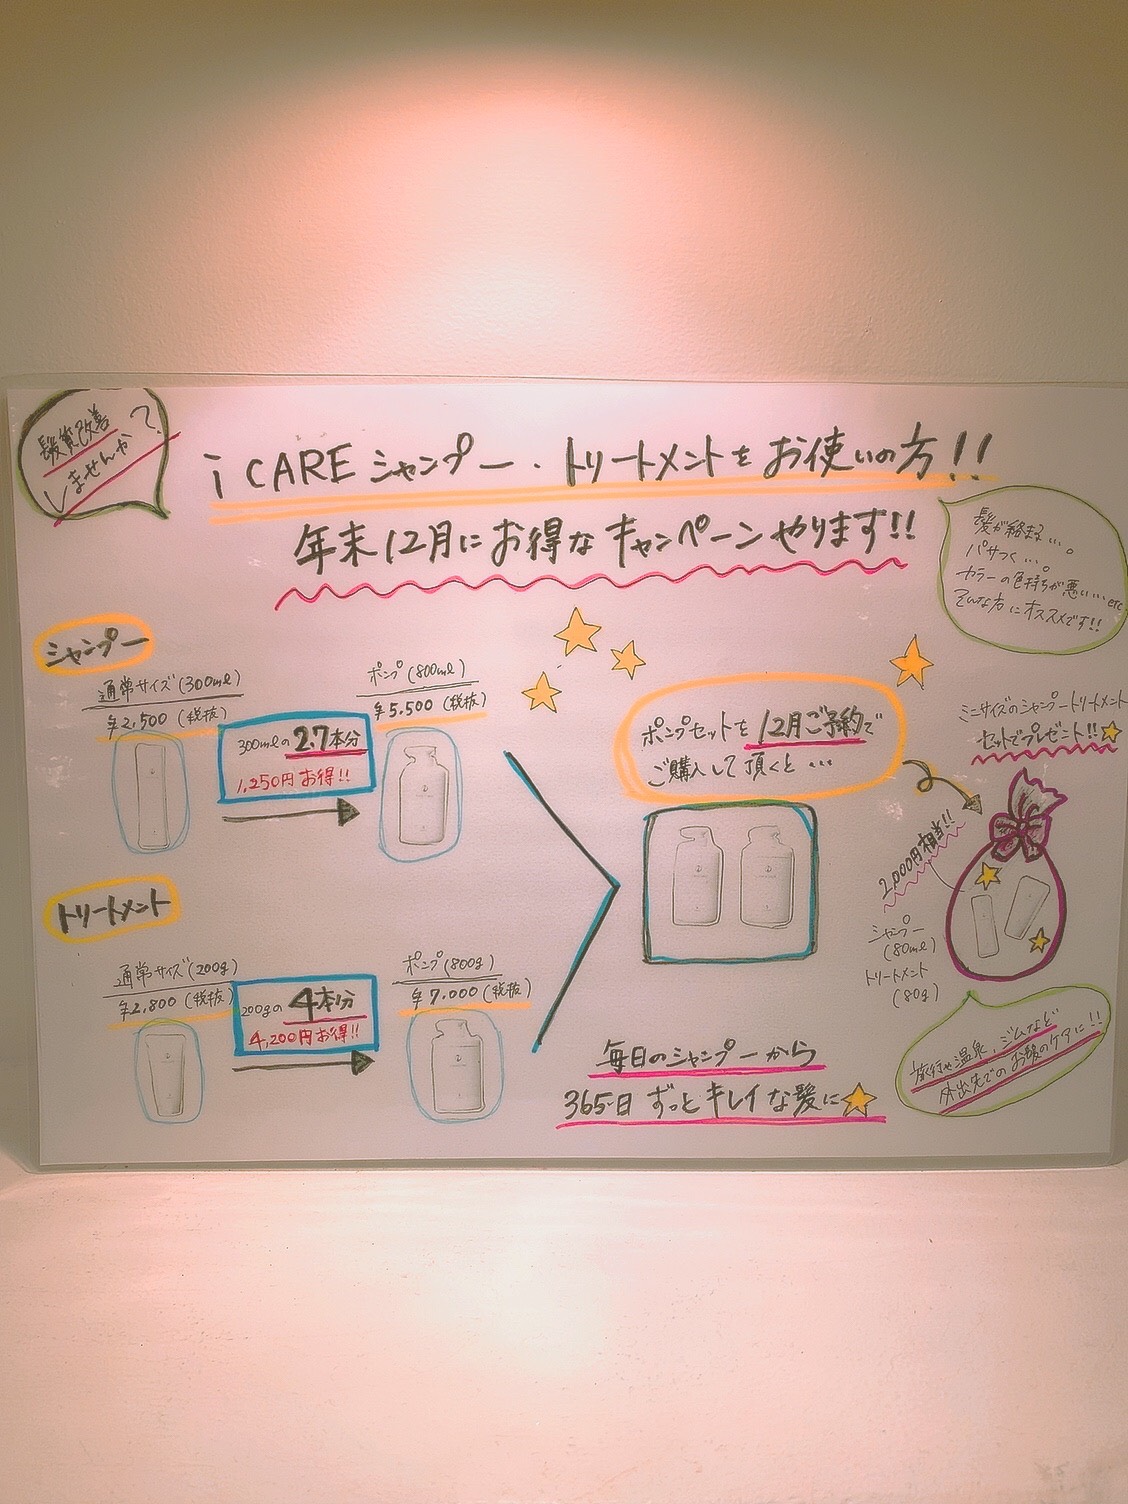 髪質改善
しませんか?
i CARE シャンプー・トリートメントをお使いの方!!
年末12月にお得なキャンペーンやります!!
髪が絡まる…。
パサつく…。
カラーの色持ちが悪い…etc
そんな方にオススメです!!
シャンプー
通常サイズ(300ml)
¥2,500(税抜)
300mlの2.7本分
1,250円お得!!
ポンプ(800ml)
¥5,500(税抜)
トリートメント
通常サイズ(200g)
¥2,800(税抜)
200gの4本分
4,200円お得!!
ポンプ(800g)
¥7,000(税抜)
ポンプセットを12月ご予約で
ご購入して頂くと…
ミニサイズのシャンプートリートメント
セットでプレゼント!!
2,000円相当!!
シャンプー
(80ml)
トリートメント
(80g)
旅行や温泉、ジムなど
外出先でのお髪のケアに!!
毎日のシャンプーから
365日ずっとキレイな髪に